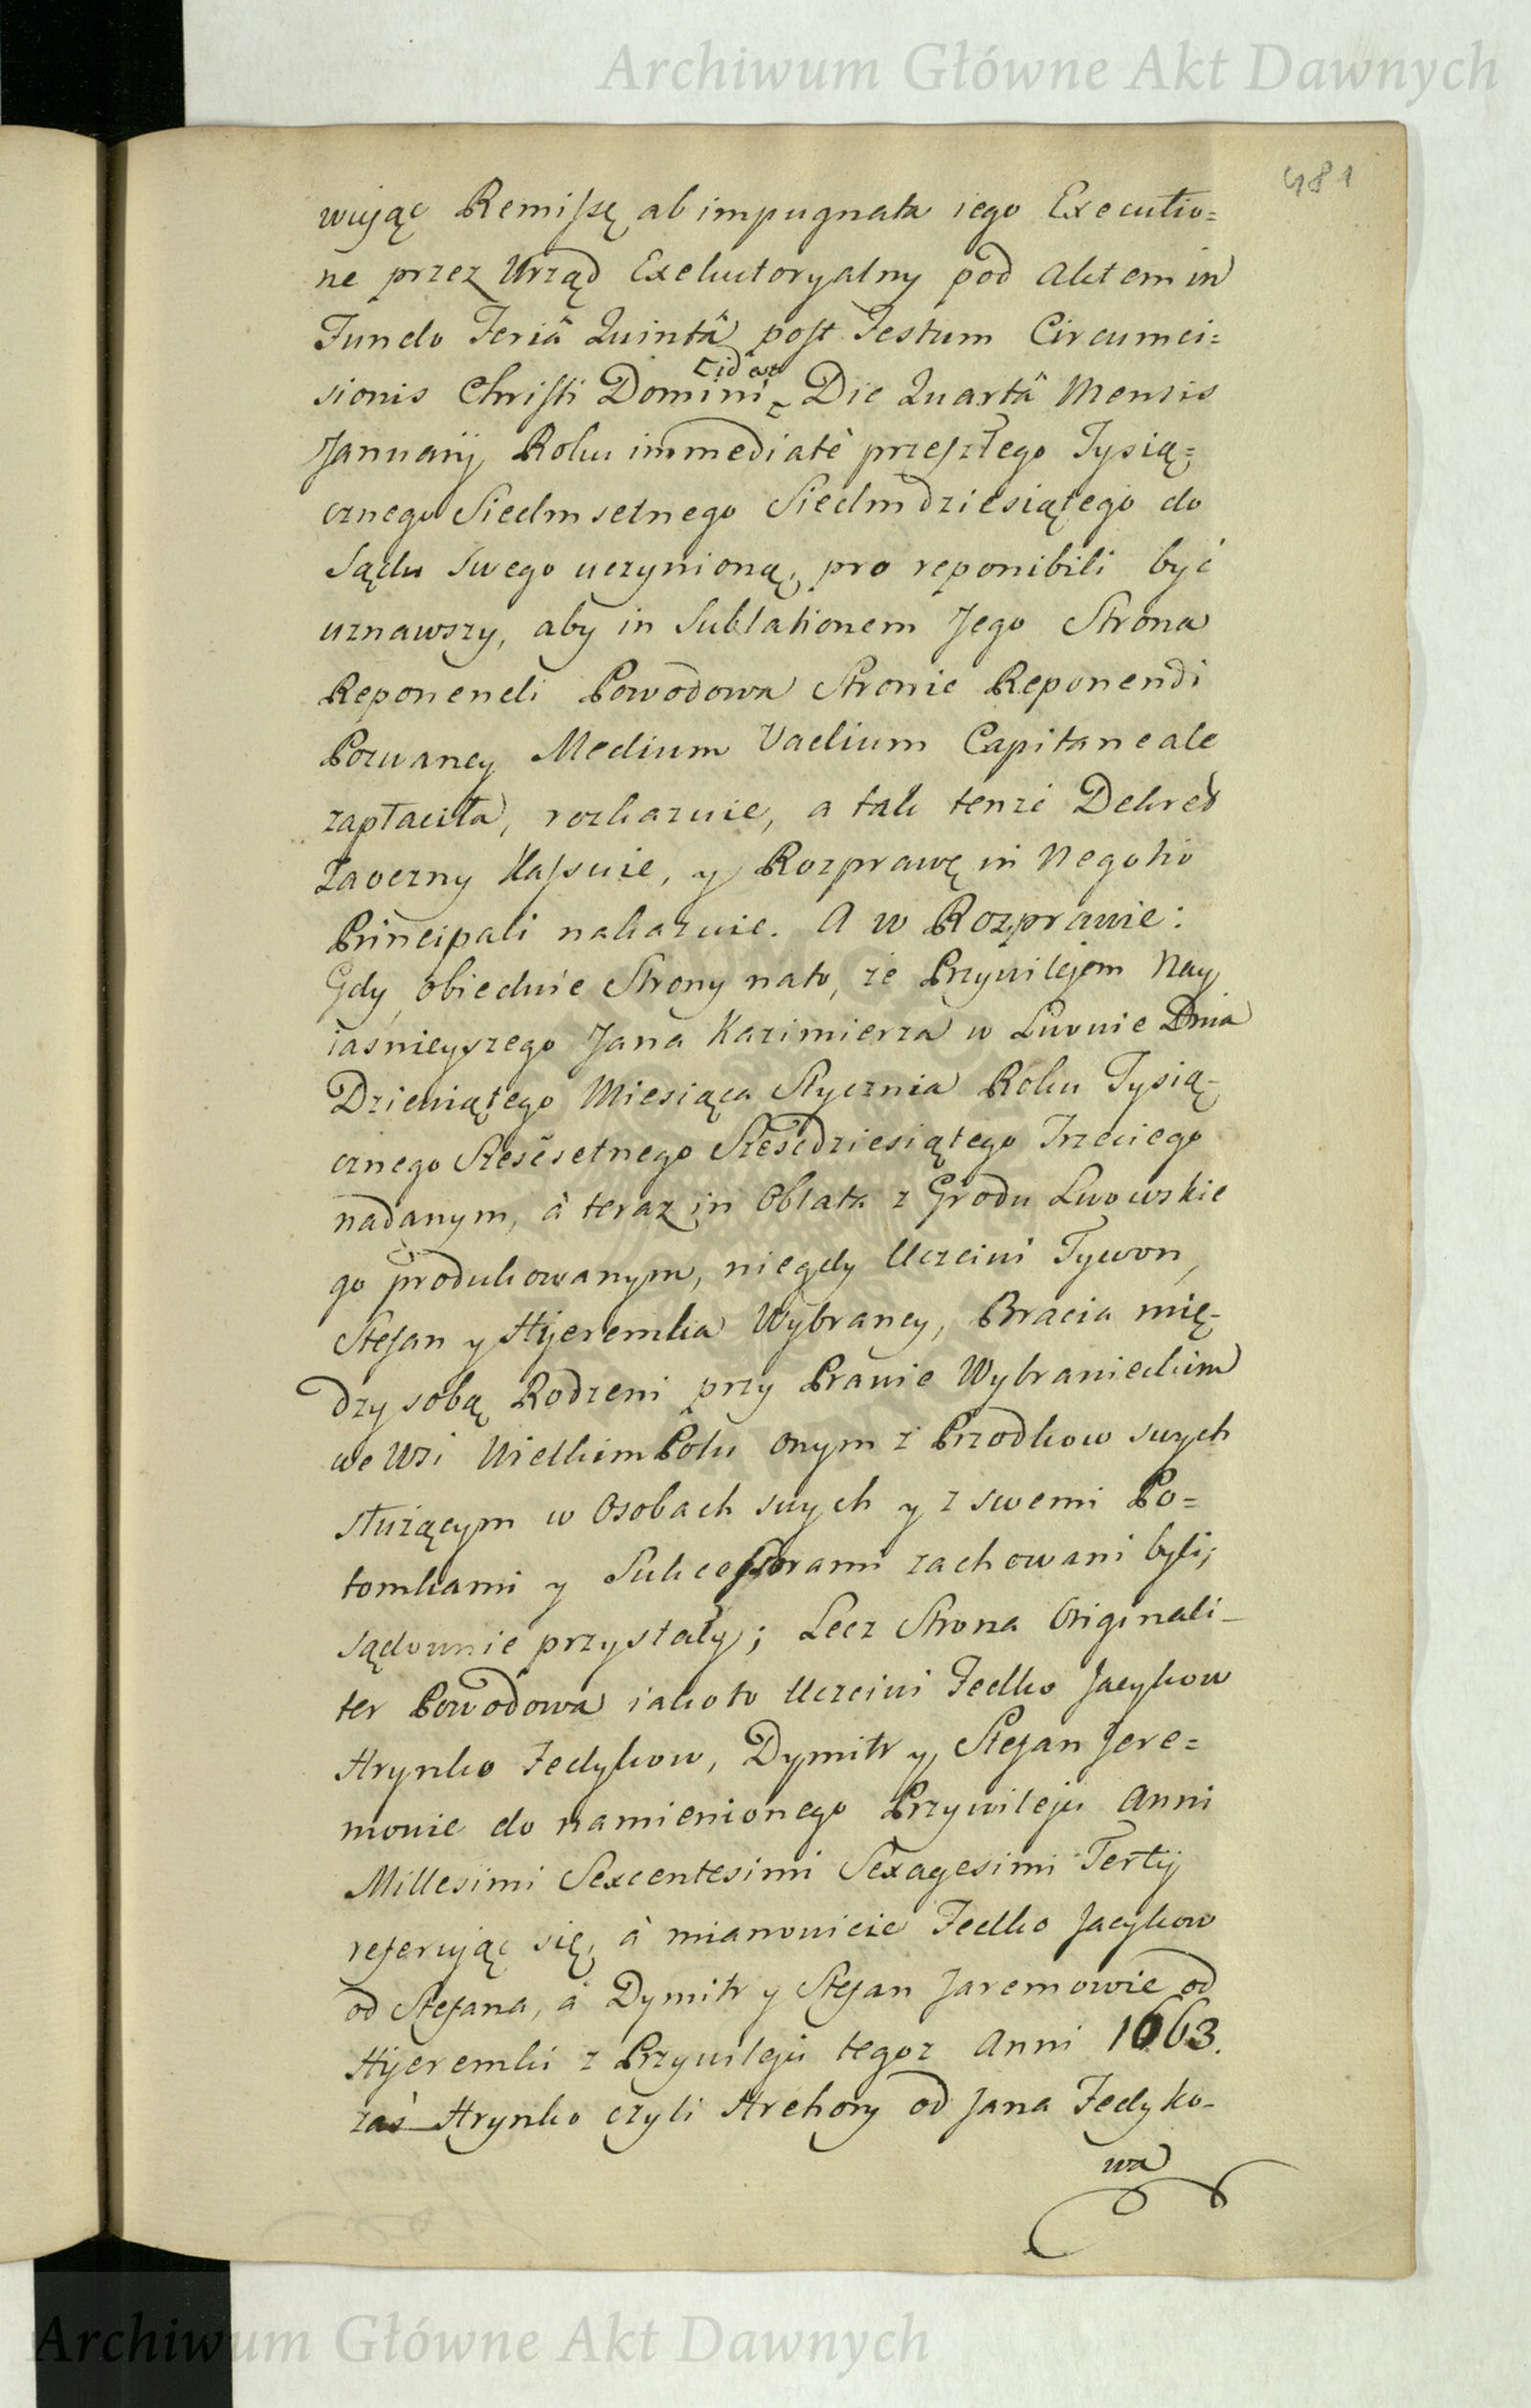 Archiwum Główne Akt Dawnych
481
wując Remissę ab impugnata iego Executio=
ne przez Urząd Exekutoryalny pod Aktem in
Fundo Feriâ Quintâ post Festum Circumci=
sionis Christi Domini id est Die Quartâ Mensis
Januarij Roku immediatè przeszłego Tysią=
cznego Siedmsetnego Siedmdziesiątego do
Sądu swego uczynioną, pro reponibili być
uznawszy, aby in Sublationem Jego Strona
Reponendi Powodowa Stronie Reponendi
Pozwaney Medium Vadium Capitaneale
zapłaciła, rozkazuie, a tak tenże Dekret
Zaoczny Kassuie, y Rozprawę in Negotio
Principali nakazuie. A w Rozprawie:
Gdy obiedwie Strony nato, że Przywilejem Nay
iaśnieyszego Jana Kazimierza w Lwowie Dnia
Dziewiątego Miesiąca Stycznia Roku Tysią-
cznego Sześćsetnego Sześćdziesiątego Trzeciego
nadanym, à teraz in Oblata z Grodu Lwowskie
go produkowanym, niegdy Uczciwi Tywon,
Stefan y Hyeremka Wybrancy, Bracia mię-
dzy sobą Rodzeni przy Prawie Wybranieckim
we Wsi WielkimPolu onym z Przodkow swych
służącym w Osobach swych y z swemi Po=
tomkami y Sukcessorami zachowani byli;
sądownie przystały; Lecz Strona Originali-
ter Powodowa iako to Uczciwi Fedko Jacykow
Hrynko Fedykow, Dymitr y Stefan Jere=
mowie do namienionego Przywileju Anni
Millesimi Sexcentesimi Sexagesimi Tertij
referując się, à mianowicie Fedko Jacykow
od Stefana, à Dymitr y Stefan Jaremowie od
Hyeremki z Przywileju tegoz Anni 1663.
zaś Hrynko czyli Hrehory od Jana Fedyko-
wa
Archiwum Główne Akt Dawnych